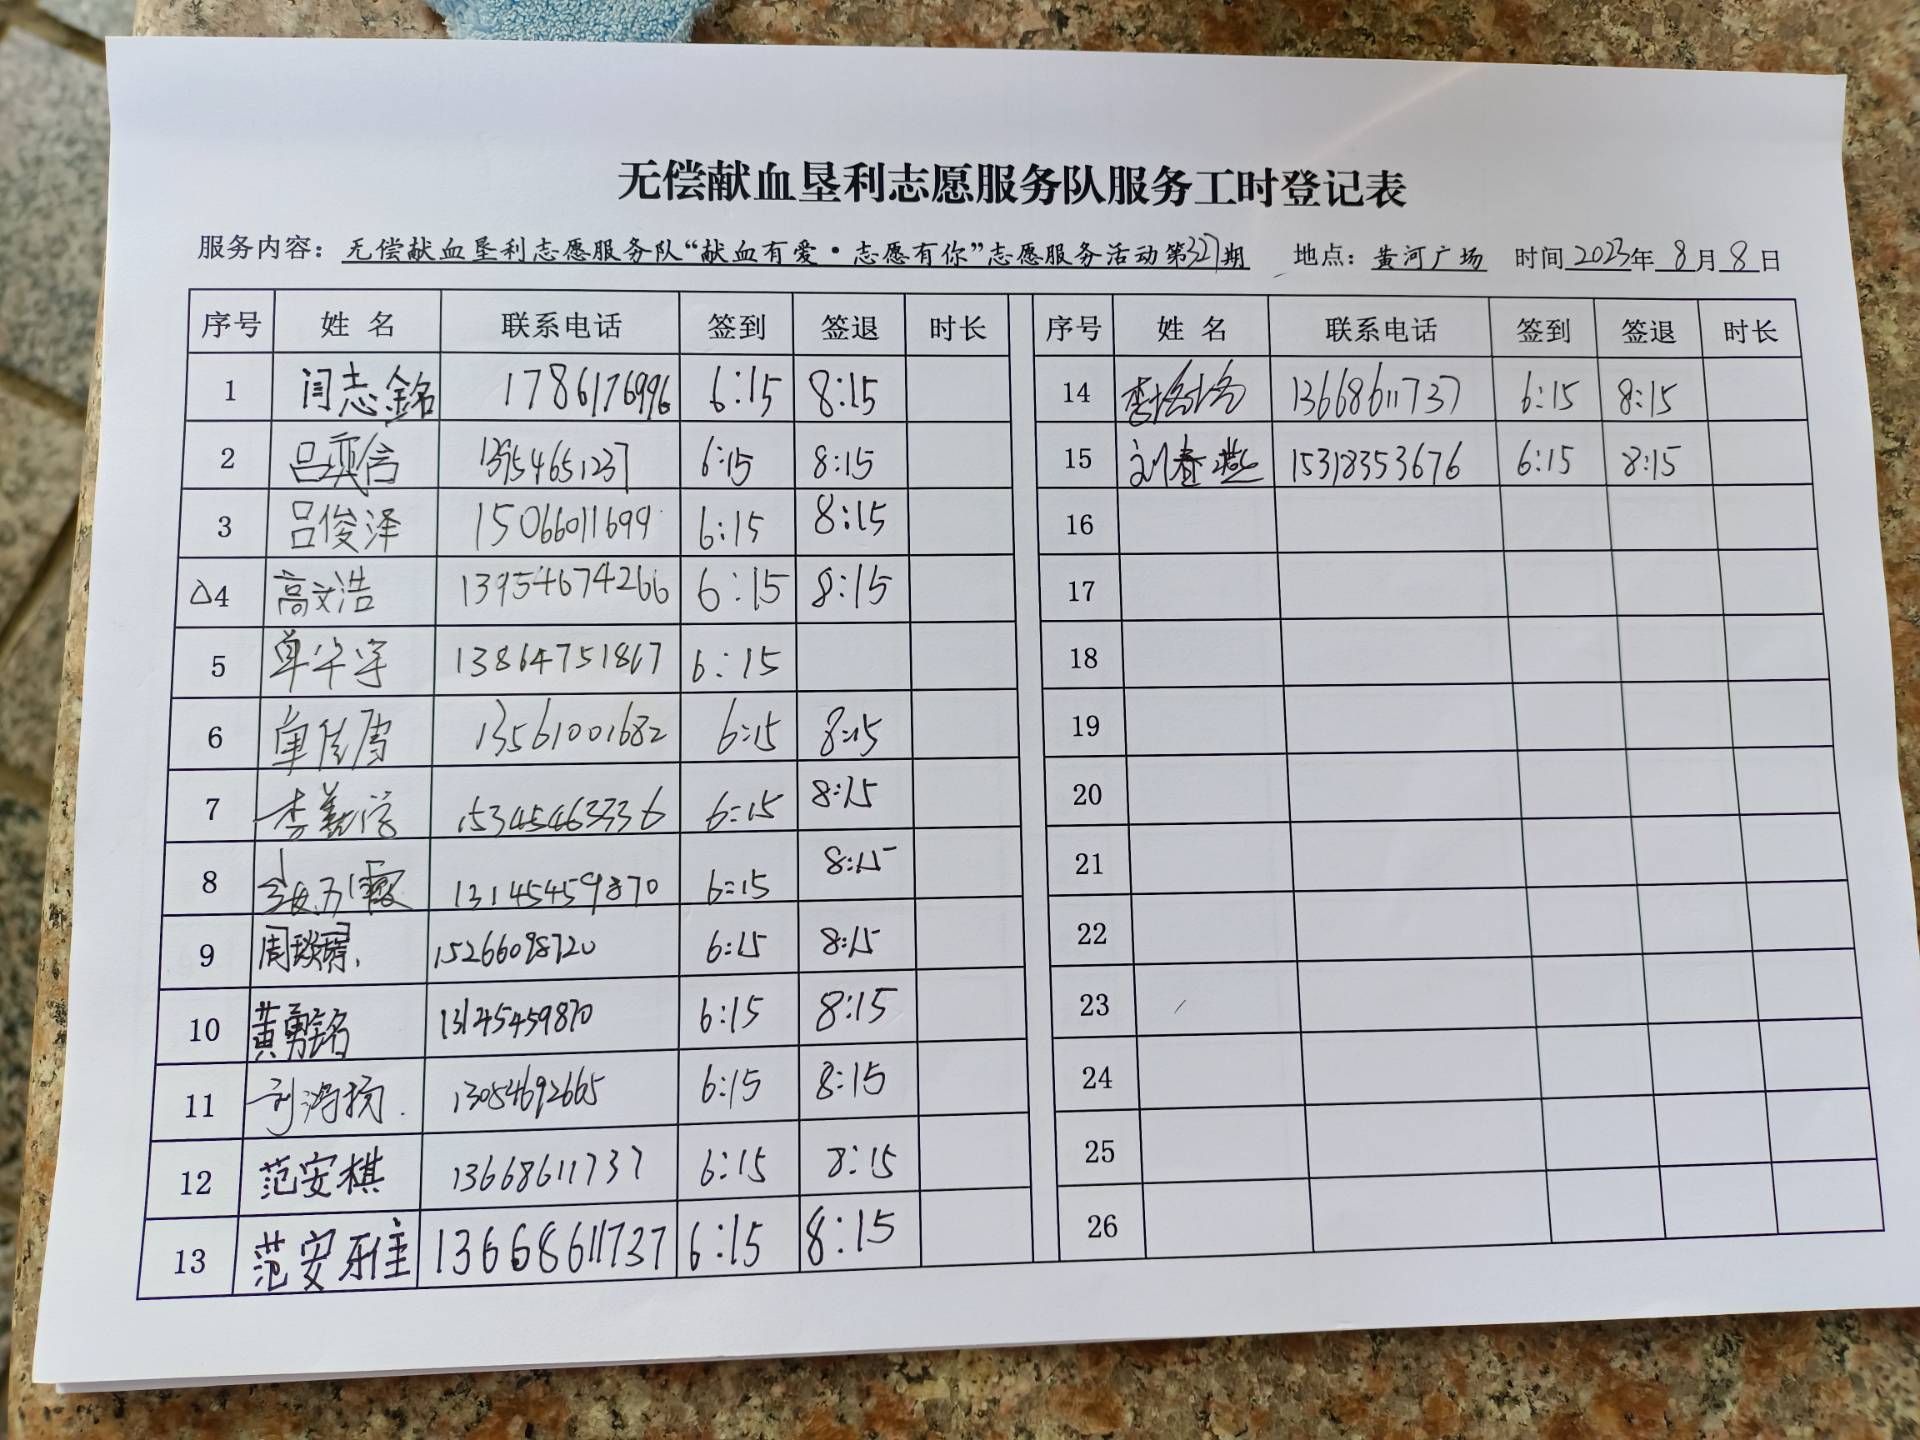 无偿献血垦利志愿服务队服务工时登记表
服务内容：无偿献血垦利志愿服务队“献血有爱·志愿有你”志愿服务活动第327期 地点：黄河广场 时间2023年8月8日
序号 姓名 联系电话 签到 签退 时长
1 闫志銘 1786176996 6:15 8:15
2 吕奕含 13954651237 6:15 8:15
3 吕俊泽 15066011699 6:15 8:15
△4 高文浩 13954674266 6:15 8:15
5 单华宇 13864751867 6:15
6 单佳雪 13561001682 6:15 8:15
7 李 6:15 8:15
8 13145459870 6:15 8:15
9 周 15266098720 6:15 8:15
10 黄勇銘 13145459870 6:15 8:15
11 刘鸿扬 13054692665 6:15 8:15
12 范安棋 13668611737 6:15 8:15
13 范安雅 13668611737 6:15 8:15
序号 姓名 联系电话 签到 签退 时长
14 李 13668611737 6:15 8:15
15 刘春燕 15318353676 6:15 8:15
16
17
18
19
20
21
22
23
24
25
26